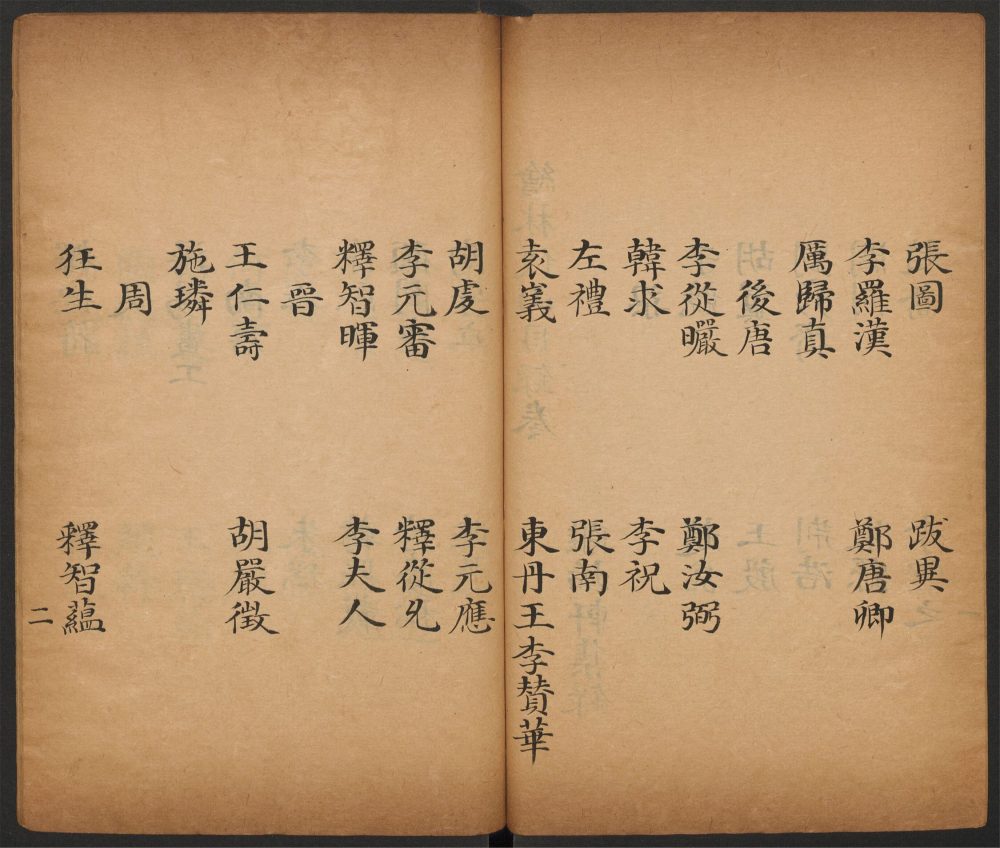 張圖 跋異
李羅漢 鄭唐卿
厲歸真
後唐
李從曮 鄭汝弼
韓求 李祝
左禮 張南
袁義 東丹王李賛華
胡虔 李元應
李元審 釋從
釋智暉 李夫人
晉
王仁壽 胡嚴徴
施璘
周
狂生 釋智蘊
二